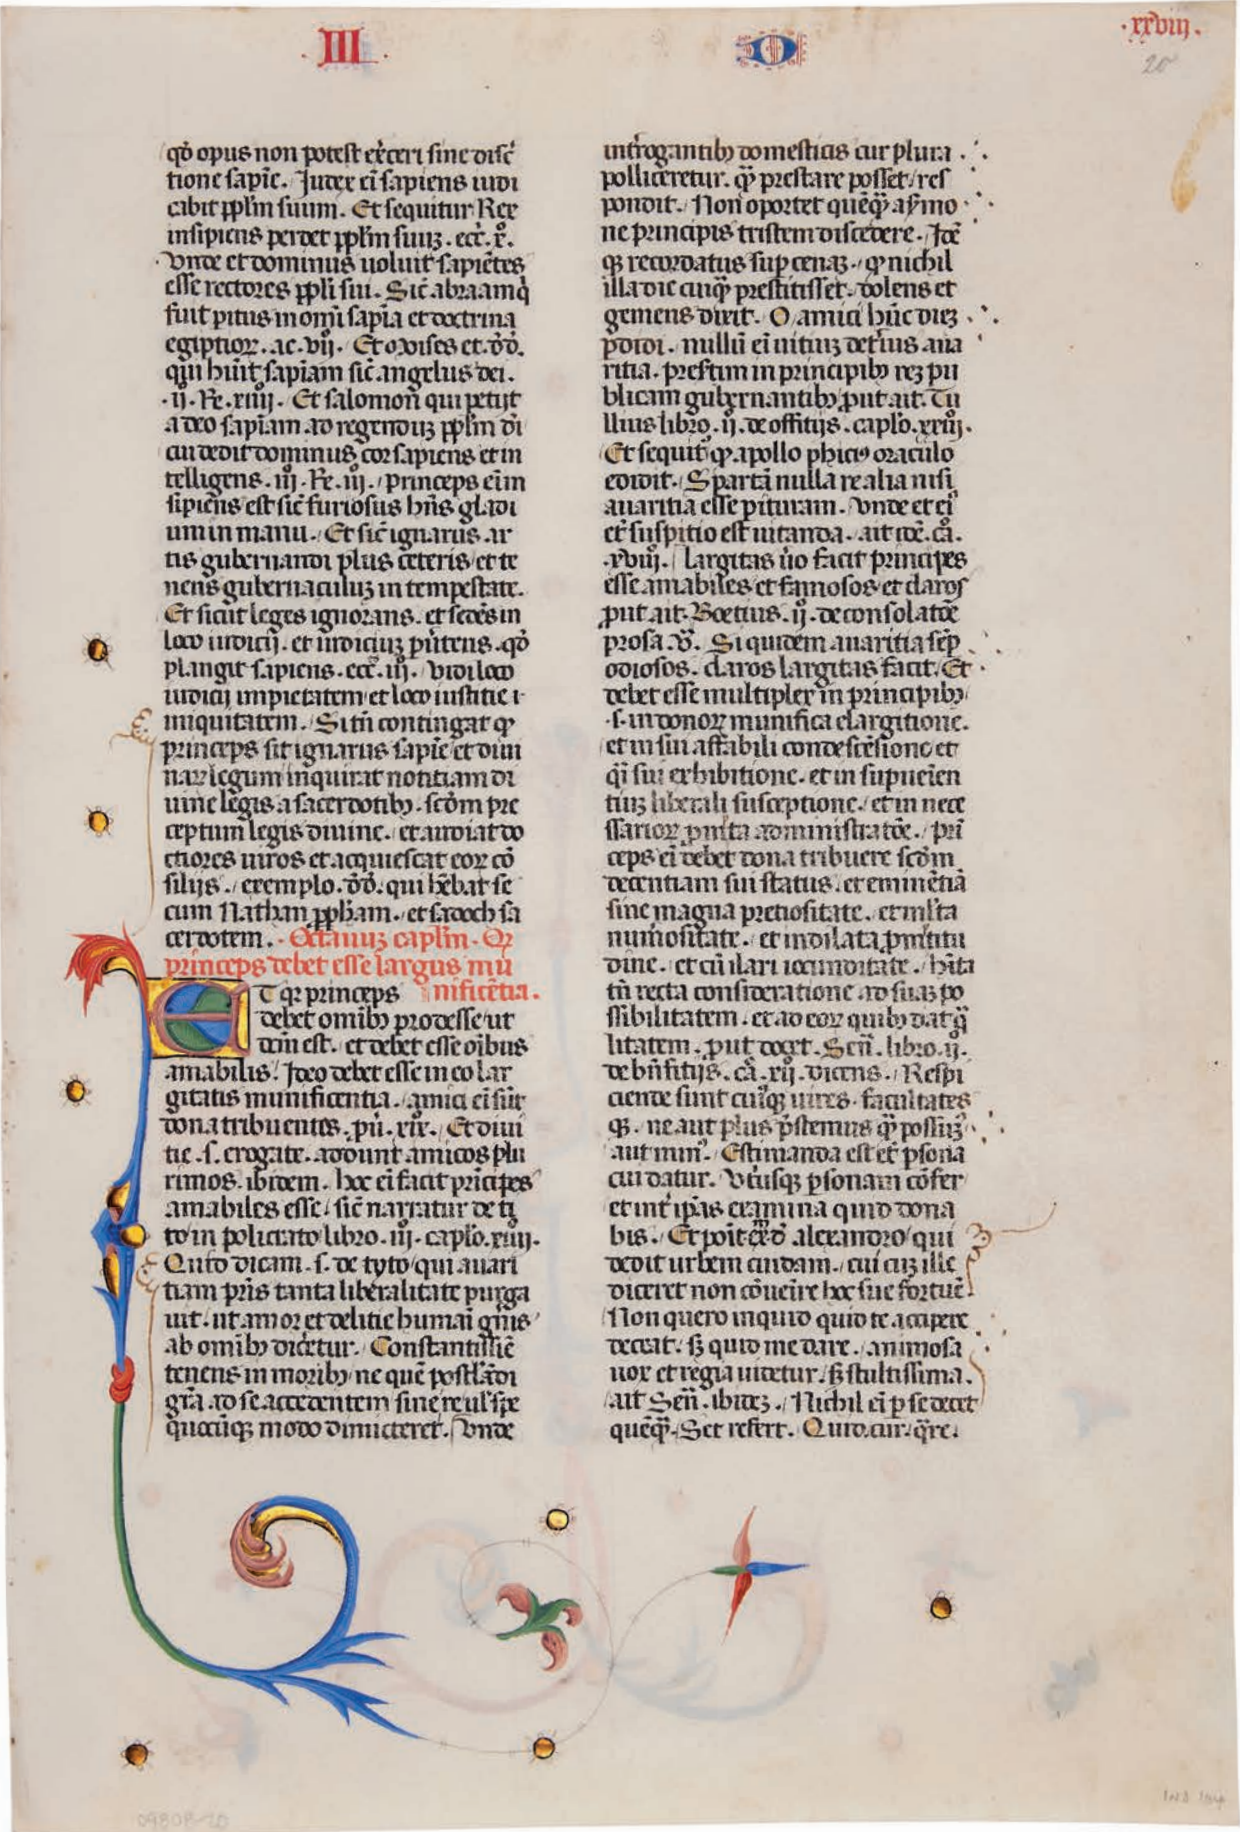 III
D
.xxviij.
20
qđ opus non potest ex̄ceri sine discͥ
tione sapīe. Judex ei̅ sapiens iudi
cabit pp̄lm suum. Et sequitur Rex
insipiens perdet pp̄lm suuꝫ. ecc̄. x̊.
Vnde et dominus uoluit sapie̅tes
esse rectores pp̄li sui. Sic̄ abraam qͥ
fuit ꝑitus in omi̅ sapīa et doctrina
egiptioꝝ. ac. vij. Et moyses et. dd̄.
qui hūit sapīam sic̄ angelus dei.
.ij. Re. xiiij. Et salomon qui petijt
a deo sapīam ad regenduꝫ pp̄lm di̅
cui dedit dominus cor sapiens et in
telligens. iij. Re. iij. princeps ei̅m
sipiens est sic̄ furiosus hn̄s gladi
um in manu. Et sic̄ ignarus ar
tis gubernandi plus ceteris et te
nens gubernaculuꝫ in tempestate.
Et sicut leges ignorans. et sede̅s in
loco iudicij. et iudiciuꝫ pūtens. qđ
plangit sapiens. ecc̄. iij. Vidi loco
iudicij impietatem et loco iustitie i
niquitatem. Si tn̄ contingat ꝙ
princeps sit ignarus sapīe et diui
naꝝ legum inquirat notitiam di
uine legis a sacerdotibꝰ. scđm pre
ceptum legis diuine. et audiat do
ctiores uiros et acquiescat eoꝝ co̅
silijs. exemplo. dd̄. qui he̅bat se
cum Nathan pp̄ham. et sadoch sa
cerdotem. Octauuꝫ capl̄m. Qꝛ
princeps debet esse largus mu
nifice̅tia.
Et qꝛ princeps
debet omībꝰ prodesse ut
dc̄m est. et debet esse oībus
amabilis. Ideo debet esse in eo lar
gitatis munificentia. amici ei̅ su̅t
dona tribuentes. pu̅. xix. Et diui
tie .s. erogate. addunt amicos plu
rimos. ibidem. hoc ei̅ facit pri̅cipes
amabiles esse. sic̄ narratur de ty
to in policrato libro. iij. caplo̅. xiiij.
Quid dicam .s. de tyto qui auari
tiam pr̄is tanta liberalitate purga
uit. ut amor et delitie humai̅ gn̄is
ab omībꝰ dic̄etur. Constantissi̅e
tenens in moribꝰ ne que̅ postl̄adi
gr̄a. ad se accedentem sine re ul̄ spe
quocu̅qꝫ modo dimicteret. Vnde
int̄rogantibꝰ domesticis cur plura
polliceretur. qꝫ̅ prestare posset res
pondit. Non oportet que̅qꝫ̅ a s̄mo
ne principis tristem discedere. Ide̅
qꝫ recordatus suꝑ cenaꝫ. ꝙ nichil
illa die cuiqꝫ̅ prestitisset. dolens et
gemens dixit. O amici hu̅c dieꝫ
ꝑdidi. nullu̅ ei̅ uitiuꝫ det̄ius aua
ritia. preſtim in principibꝰ reꝫ pu
blicam gub̄nantibꝰ ꝓut ait. Tu
llius libro. ij. de offitijs. caplo̅. xxiij.
Et sequit᷑ ꝙ. apollo phiciꝰ oraculo
edidit. Sparta̅ nulla re alia nisi
auaritia esse ꝑituram. Vnde et ei̅
et̄ suspitio est uitanda. ait ide̅. ca̅.
.xviij. largitas u̅o facit principes
esse amabiles et famosos et claros
ꝓut ait. Boetius. ij. de consolato̅e
prosa. v̊. Siquidem auaritia sēꝑ
odiosos. claros largitas facit. Et
debet esse multiplex in principibꝰ
.s. in donoꝝ munifica elargitione.
et in sui affabili condesce̅sione et
qͥ sui exhibitione. et in supueien
tiuꝫ liberali susceptione. et in nece
ssarioꝝ ꝓuīta administrato̅e. pri̅
ceps ei̅ debet dona tribuere scđm
decentiam sui status. et eminētia̅
sine magna pretiositate. et ml̄ta
num̄ositate. et indilata ꝓmtitu
dine. et cu̅ ilari iocunditate. h̄ita
tn̄ recta consideratione ad suaꝫ po
ssibilitatem. et ad eoꝝ quibꝰ dat᷑ qͣ
litatem. ꝓut docet. Sen̄. libro. ij.
de bn̄fitijs. ca̅. xij. dicens. Respi
ciende sunt cuiqꝫ uires. facultates
qꝫ. ne aut plus p̄stemus qꝫ̅ possu̅ꝫ
aut minꝰ. Estimanda est et̄ ꝑsona
cui datur. Vt̄iusqꝫ ꝑsonam co̅fer
et int̄ ip̄as examina quid dona
bis. Et poi̅t ex̅ d̊ alexandro qui
dedit urbem cuidam. cui cuꝫ ille
diceret non co̅uei̅re hoc sue fortue̅
Non quero inquid quid te accipere
deceat. sꝫ quid me dare. animosa
uox et regia uidetur. sꝫ stultissima.
ait Sen̄. ibideꝫ. Nichil ei̅ ꝑ se decet
que̅qꝫ̅. Set refert. Quid. cui. qͣre.
0980B-20